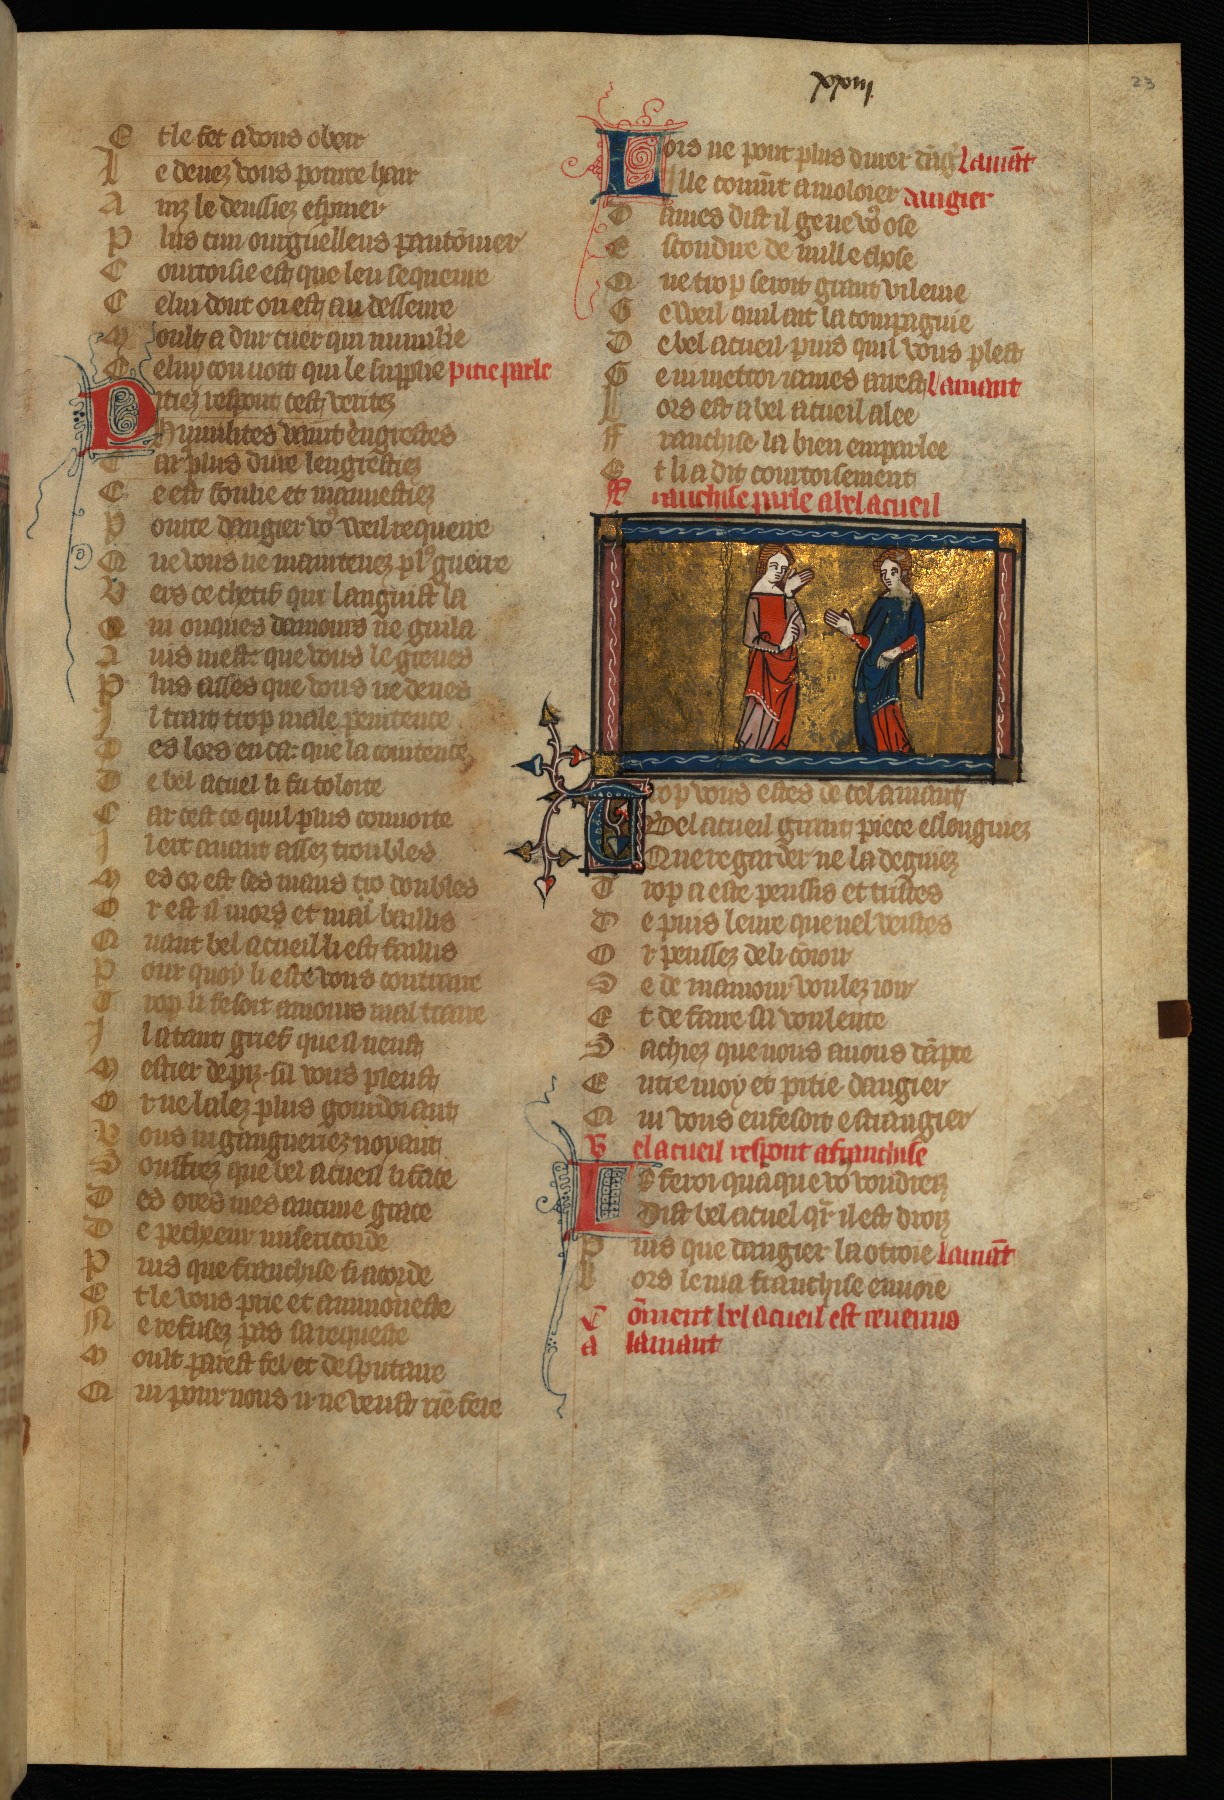 xxiii
23
E t le fet a vous obeir
L e devez vous pour ce hair
A inz le deussiez espnier
P lus cun ourguelleus pautōnier
C ourtoisie est que len sequeure
C elui dont on est au desseure
M oult a dur cuer qui numilie
C eluy con voit qui le supplie pitie parle
P itiez respont cest veritez
H umilites vaint engrestes
C ar plus dure lengrestiez
C e est folie et mauvestiez
P our ce dangier vo9 veil requerre
Q ue vous ne mainteuez pl9 guerre
V ers ce chetif qui languist la
Q ui onques damours ne guila
A vis mest que vous le greves
P lus asses que vous ne deves
I l trait trop male penitence
D es lors en ca que la cointence
D e bel acueil li fu toloite
C ar cest ce quil plus convoite
I l ert avant assez troubles
M es or est ses maus tro doubles
O r est il mors et mal baillis
Q uant bel acueil li est faillis
P our quoy li este vous contraire
T rop li fesoit amours mal traire
I l a tant grief que il neust
M estier de piz sil vous pleust
O r ne lalez plus gourdoiant
V ous ni gaigneriez noyant
S ouffrez que bel acueil li face
D es ores mes aucune grace
D e pecheeur misericorde
P uis que franchise si acorde
E t le vous prie et ammoneste
N e refusez pas sa requeste
M oult par est fel et desputaire
Q ui pour nous ii ne veust riē fere
L ors ne pout plus durer dāgi9 Lamāt
I lle convīt amoloier dangier
D ames dist il ge ne vo9 ose
E scondire de nulle chose
Q ue trop seroit grant vilenie
G e veil quil ait la compaignie
D e bel acueil puis quil vous plest
G e ni mettroi iames arrest Lamant
L ors est a bel acueil alee
F ranchise la bien emparlee
E t li a dit courtoisement
F ranchise parle a bel acueil
T rop vous estes de cel amant
B el acueil grant piece esloigniez
Q ue regarder ne la degniez
T rop a este pensis et tristes
D e puis leure que nel veistes
O r pensses de li cōioir
S e de mamour voulez ioir
E t de faire sa voulente
S achiez que nous avons dāpte
E ntre moy et pitie dangier
Q ui vous en fesoit estrangier
B el acueil respont a franchise
I e feroi quāque vo9 voudrez
D ist bel acuel qr il est droiz
P uis que dangier la otroie Lamāt
L ors le ma franchise envoie
C ōment bel acueil est revenus
a lamant